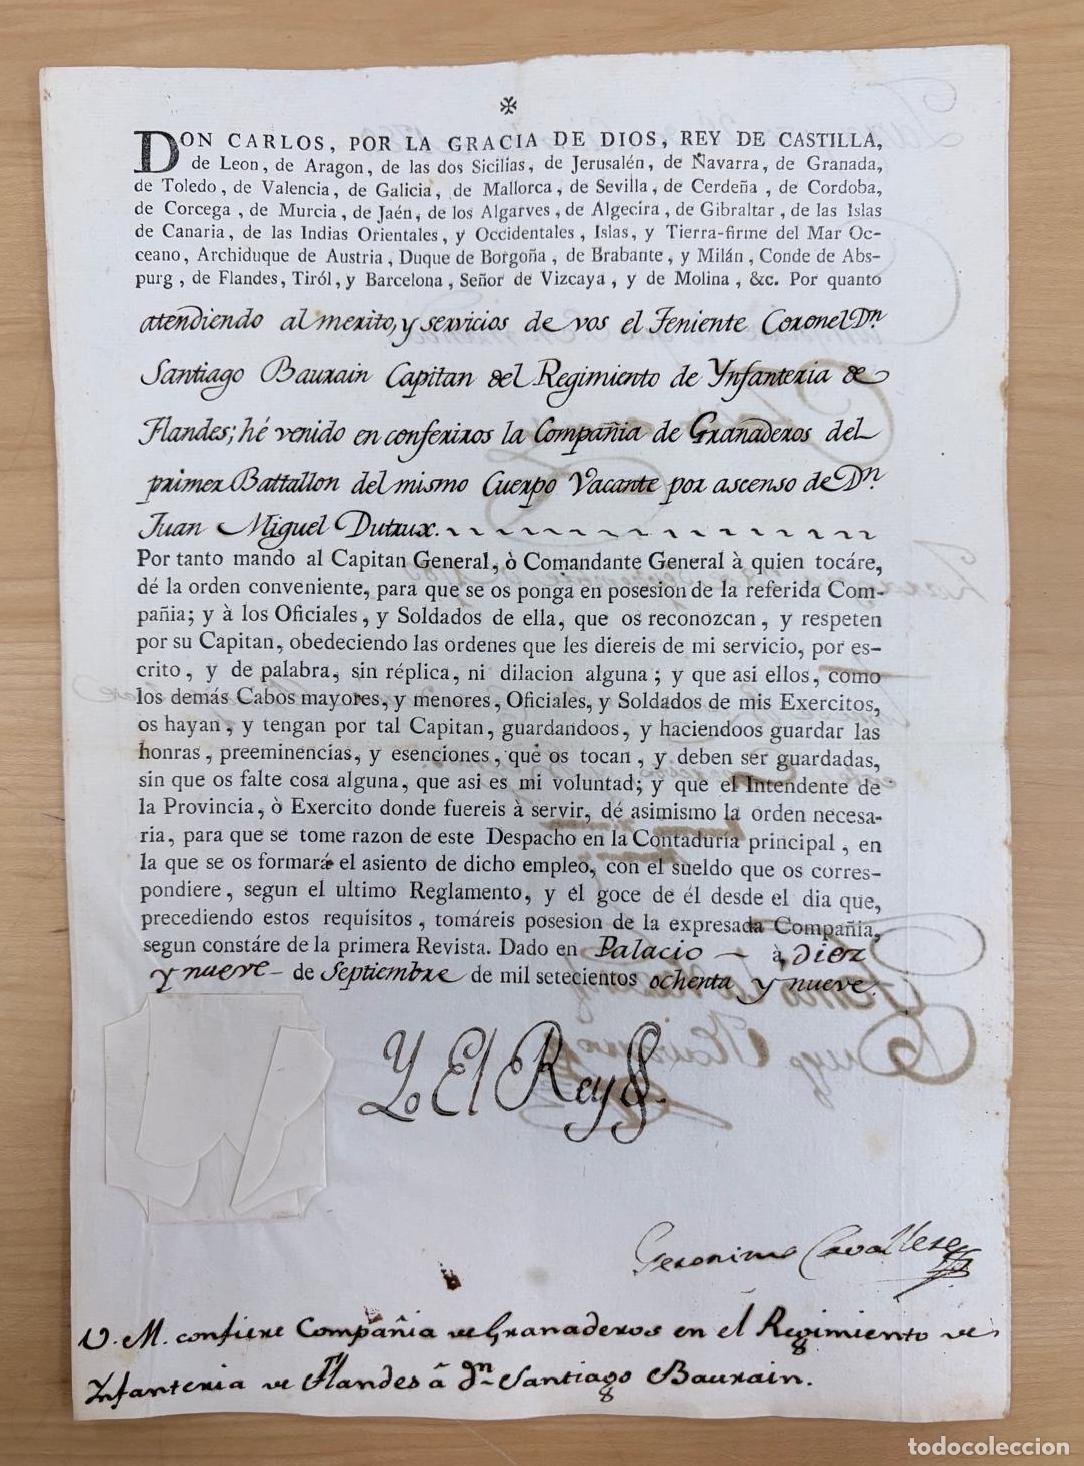 ✠
DON CARLOS, POR LA GRACIA DE DIOS, REY DE CASTILLA,
de Leon, de Aragon, de las dos Sicilias, de Jerusalén, de Navarra, de Granada,
de Toledo, de Valencia, de Galicia, de Mallorca, de Sevilla, de Cerdeña, de Cordoba,
de Corcega, de Murcia, de Jaén, de los Algarves, de Algecira, de Gibraltar, de las Islas
de Canaria, de las Indias Orientales, y Occidentales, Islas, y Tierra-firme del Mar Oc-
ceano, Archiduque de Austria, Duque de Borgoña, de Brabante, y Milán, Conde de Abs-
purg, de Flandes, Tiról, y Barcelona, Señor de Vizcaya, y de Molina, &c. Por quanto
atendiendo al merito, y servicios de vos el Teniente Coronel Dn
Santiago Baurain Capitan del Regimiento de Ynfanteria de
Flandes; hé venido en conferiros la Compañia de Granaderos del
primer Battallon del mismo Cuerpo Vacante por ascenso de Dn
Juan Miguel Dutrux.
Por tanto mando al Capitan General, ò Comandante General à quien tocáre,
dé la orden conveniente, para que se os ponga en posesion de la referida Com-
pañia; y à los Oficiales, y Soldados de ella, que os reconozcan, y respeten
por su Capitan, obedeciendo las ordenes que les diereis de mi servicio, por es-
crito, y de palabra, sin réplica, ni dilacion alguna; y que asi ellos, como
los demás Cabos mayores, y menores, Oficiales, y Soldados de mis Exercitos,
os hayan, y tengan por tal Capitan, guardandoos, y haciendoos guardar las
honras, preeminencias, y esenciones, que os tocan, y deben ser guardadas,
sin que os falte cosa alguna, que asi es mi voluntad; y que el Intendente de
la Provincia, ò Exercito donde fuereis à servir, dé asimismo la orden necesa-
ria, para que se tome razon de este Despacho en la Contaduría principal, en
la que se os formará el asiento de dicho empleo, con el sueldo que os corres-
pondiere, segun el ultimo Reglamento, y el goce de él desde el dia que,
precediendo estos requisitos, tomáreis posesion de la expresada Compañia,
segun constáre de la primera Revista. Dado en Palacio à diez
y nueve de Septiembre de mil setecientos ochenta y nueve.
Yo El Rey
Geronimo Cavallero
V. M. confiere Compañia de Granaderos en el Regimiento de
Infanteria de Flandes â dn Santiago Baurain.
todocoleccion